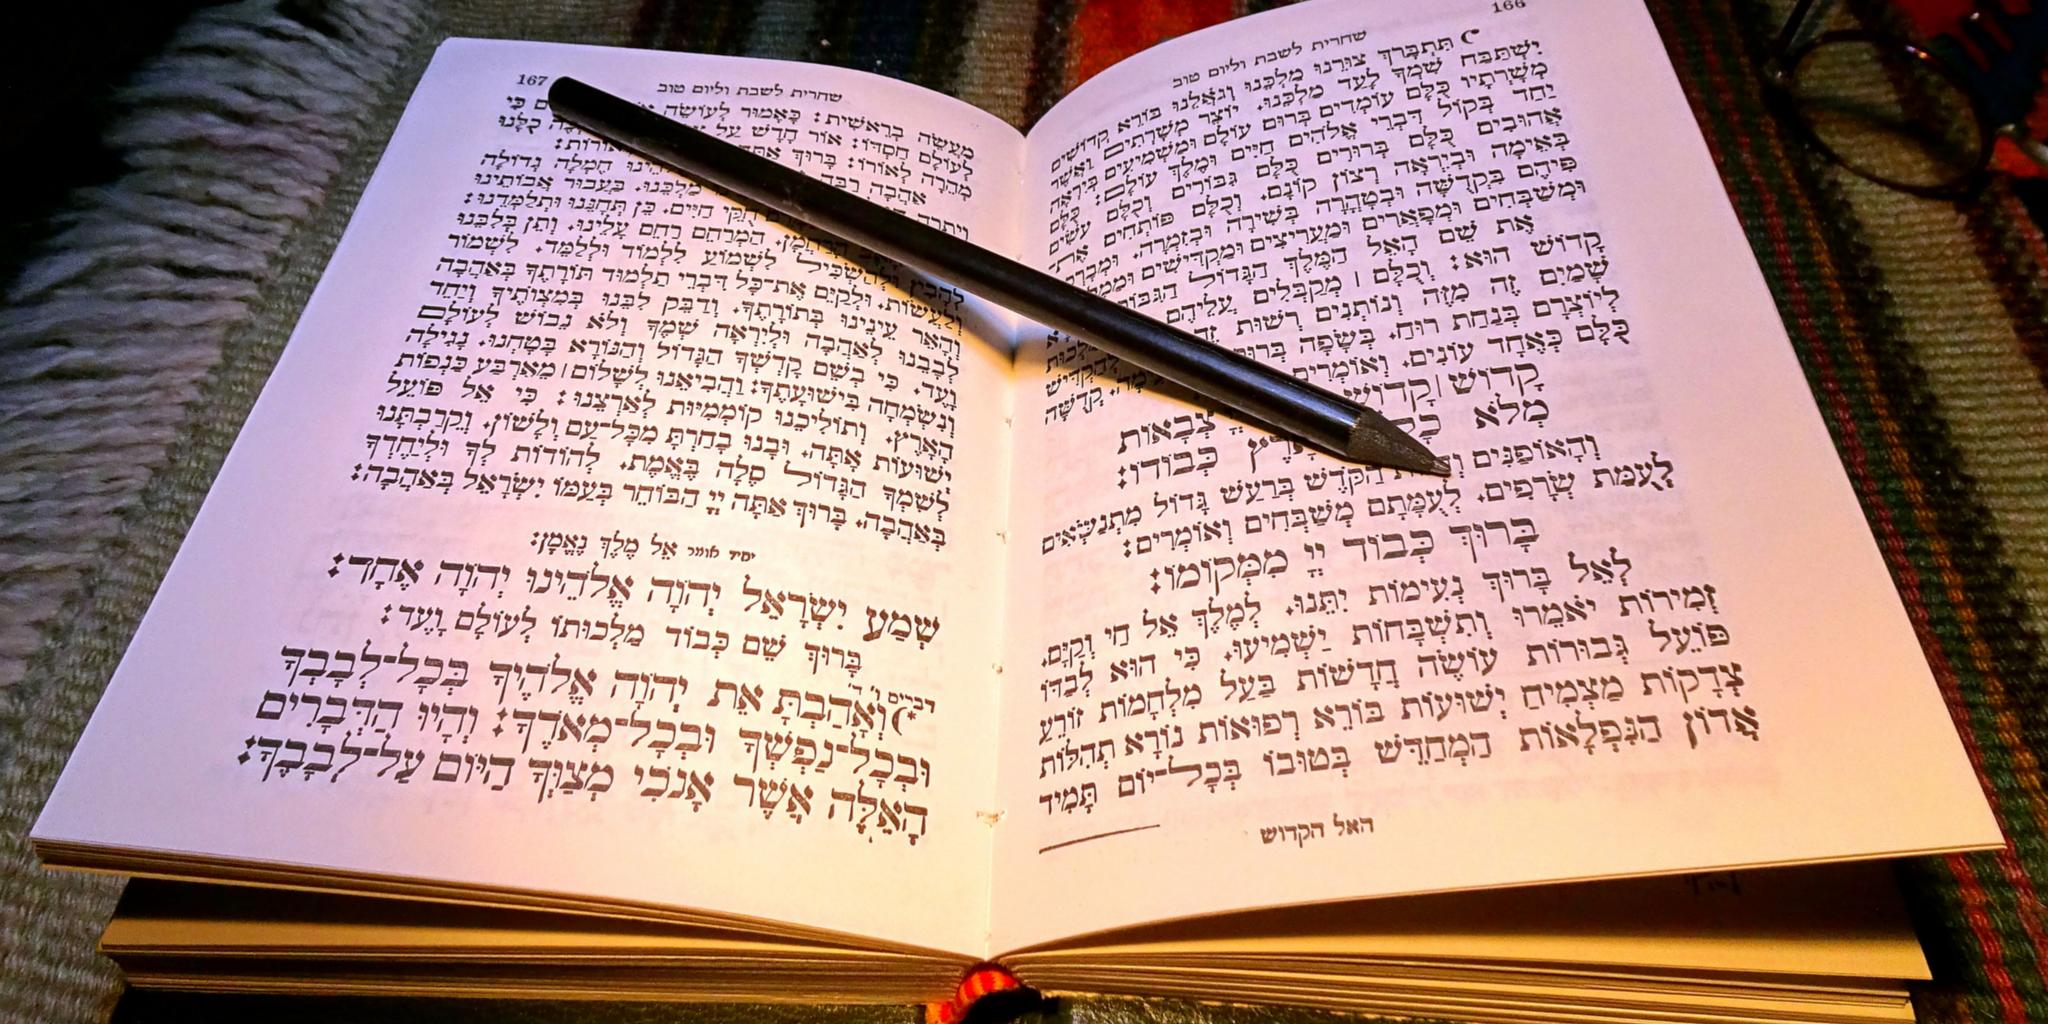 166
שחרית לשבת וליום טוב
תִּתְבָּרַךְ צוּרֵנוּ מַלְכֵּנוּ וְגֹאֲלֵנוּ בּוֹרֵא קְדוֹשִׁים
יִשְׁתַּבַּח שִׁמְךָ לָעַד מַלְכֵּנוּ. יוֹצֵר מְשָׁרְתִים וַאֲשֶׁר
מְשָׁרְתָיו כֻּלָּם עוֹמְדִים בְּרוּם עוֹלָם וּמַשְׁמִיעִים בְּיִרְאָה
יַחַד בְּקוֹל דִּבְרֵי אֱלֹהִים חַיִּים וּמֶלֶךְ עוֹלָם:
אֲהוּבִים כֻּלָּם בְּרוּרִים כֻּלָּם גִּבּוֹרִים וְכֻלָּם עֹשִׂים
בְּאֵימָה וּבְיִרְאָה רְצוֹן קוֹנָם. וְכֻלָּם פּוֹתְחִים אֶת־
פִּיהֶם בִּקְדֻשָּׁה וּבְטָהֳרָה בְּשִׁירָה וּבְזִמְרָה. וּמְבָרְכִים
וּמְשַׁבְּחִים וּמְפָאֲרִים וּמַעֲרִיצִים וּמַקְדִּישִׁים
אֶת שֵׁם הָאֵל הַמֶּלֶךְ הַגָּדוֹל
קָדוֹשׁ הוּא: וְכֻלָּם | מְקַבְּלִים עֲלֵיהֶם
שָׁמַיִם זֶה מִזֶּה וְנוֹתְנִים רְשׁוּת
לְיוֹצְרָם בְּנַחַת רוּחַ. בְּשָׂפָה קְדֻשָּׁה
כֻּלָּם כְּאֶחָד עוֹנִים. וְאוֹמְרִים
קָדוֹשׁ | קָדוֹשׁ צְבָאוֹת
מְלֹא כְּבוֹדוֹ:
וְהָאוֹפַנִּים הַקֹּדֶשׁ בְּרַעַשׁ גָּדוֹל מִתְנַשְּׂאִים
לְעֻמַּת שְׂרָפִים. לְעֻמָּתָם מְשַׁבְּחִים וְאוֹמְרִים:
בָּרוּךְ כְּבוֹד יְיָ מִמְּקוֹמוֹ:
לְאֵל בָּרוּךְ נְעִימוֹת יִתֵּנוּ. לְמֶלֶךְ אֵל חַי וְקַיָּם.
זְמִירוֹת יֹאמֵרוּ וְתִשְׁבָּחוֹת יַשְׁמִיעוּ. כִּי הוּא לְבַדּוֹ
פּוֹעֵל גְּבוּרוֹת עוֹשֶׂה חֲדָשׁוֹת בַּעַל מִלְחָמוֹת זוֹרֵעַ
צְדָקוֹת מַצְמִיחַ יְשׁוּעוֹת בּוֹרֵא רְפוּאוֹת נוֹרָא תְהִלּוֹת
אֲדוֹן הַנִּפְלָאוֹת הַמְחַדֵּשׁ בְּטוּבוֹ בְּכָל־יוֹם תָּמִיד
האל הקדוש
167
שחרית לשבת וליום טוב
מַעֲשֵׂה בְרֵאשִׁית: כָּאָמוּר לְעוֹשֵׂה כִּי
לְעוֹלָם חַסְדּוֹ: אוֹר חָדָשׁ עַל כֻלָּנוּ
מְהֵרָה לְאוֹרוֹ: בָּרוּךְ
אַהֲבָה רַבָּה חֶמְלָה גְדוֹלָה
וִיתֵרָה מַלְכֵּנוּ. בַּעֲבוּר אֲבוֹתֵינוּ
חֻקֵּי חַיִּים. כֵּן תְּחָנֵּנוּ וּתְלַמְּדֵנוּ:
הַמְרַחֵם רַחֵם עָלֵינוּ. וְתֵן בְּלִבֵּנוּ
לְהָבִין וּלְהַשְׂכִּיל לִשְׁמוֹעַ לִלְמוֹד וּלְלַמֵּד. לִשְׁמוֹר
וְלַעֲשׂוֹת. וּלְקַיֵּם אֶת־כָּל דִּבְרֵי תַלְמוּד תּוֹרָתֶךָ בְּאַהֲבָה
וְהָאֵר עֵינֵינוּ בְּתוֹרָתֶךָ. וְדַבֵּק לִבֵּנוּ בְּמִצְוֹתֶיךָ וְיַחֵד
לְבָבֵנוּ לְאַהֲבָה וּלְיִרְאָה שְׁמֶךָ וְלֹא נֵבוֹשׁ לְעוֹלָם
וָעֶד. כִּי בְשֵׁם קָדְשְׁךָ הַגָּדוֹל וְהַנּוֹרָא בָּטָחְנוּ. נָגִילָה
וְנִשְׂמְחָה בִּישׁוּעָתֶךָ: וַהֲבִיאֵנוּ לְשָׁלוֹם | מֵאַרְבַּע כַּנְפוֹת
הָאָרֶץ. וְתוֹלִיכֵנוּ קוֹמְמִיּוּת לְאַרְצֵנוּ: כִּי אֵל פּוֹעֵל
יְשׁוּעוֹת אָתָּה. וּבָנוּ בָחַרְתָּ מִכָּל־עַם וְלָשׁוֹן. וְקֵרַבְתָּנוּ
לְשִׁמְךָ הַגָּדוֹל סֶלָה בֶּאֱמֶת. לְהוֹדוֹת לְךָ וּלְיַחֶדְךָ
בְּאַהֲבָה. בָּרוּךְ אַתָּה יְיָ הַבּוֹחֵר בְּעַמּוֹ יִשְׂרָאֵל בְּאַהֲבָה:
יחיד אומר אֵל מֶלֶךְ נֶאֱמָן:
שְׁמַע יִשְׂרָאֵל יְהוָה אֱלֹהֵינוּ יְהוָה אֶחָד:
בָּרוּךְ שֵׁם כְּבוֹד מַלְכוּתוֹ לְעוֹלָם וָעֶד:
דברים ו׳ ה׳
וְאָהַבְתָּ אֵת יְהוָה אֱלֹהֶיךָ בְּכָל־לְבָבְךָ
וּבְכָל־נַפְשְׁךָ וּבְכָל־מְאֹדֶךָ: וְהָיוּ הַדְּבָרִים
הָאֵלֶּה אֲשֶׁר אָנֹכִי מְצַוְּךָ הַיּוֹם עַל־לְבָבֶךָ: